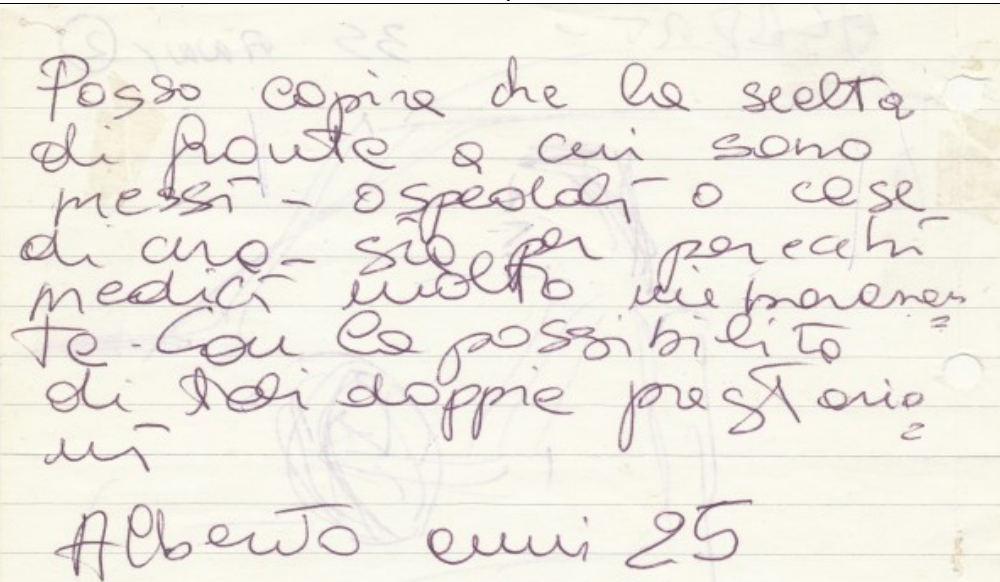 Posso capire che la scelta
di fronte a cui sono
messi - ospedali o case
di cura - sia per parecchi
medici molto imbarazzan=
te. Con la possibilità
di tali doppie prestazio=
ni
Alberto anni 25